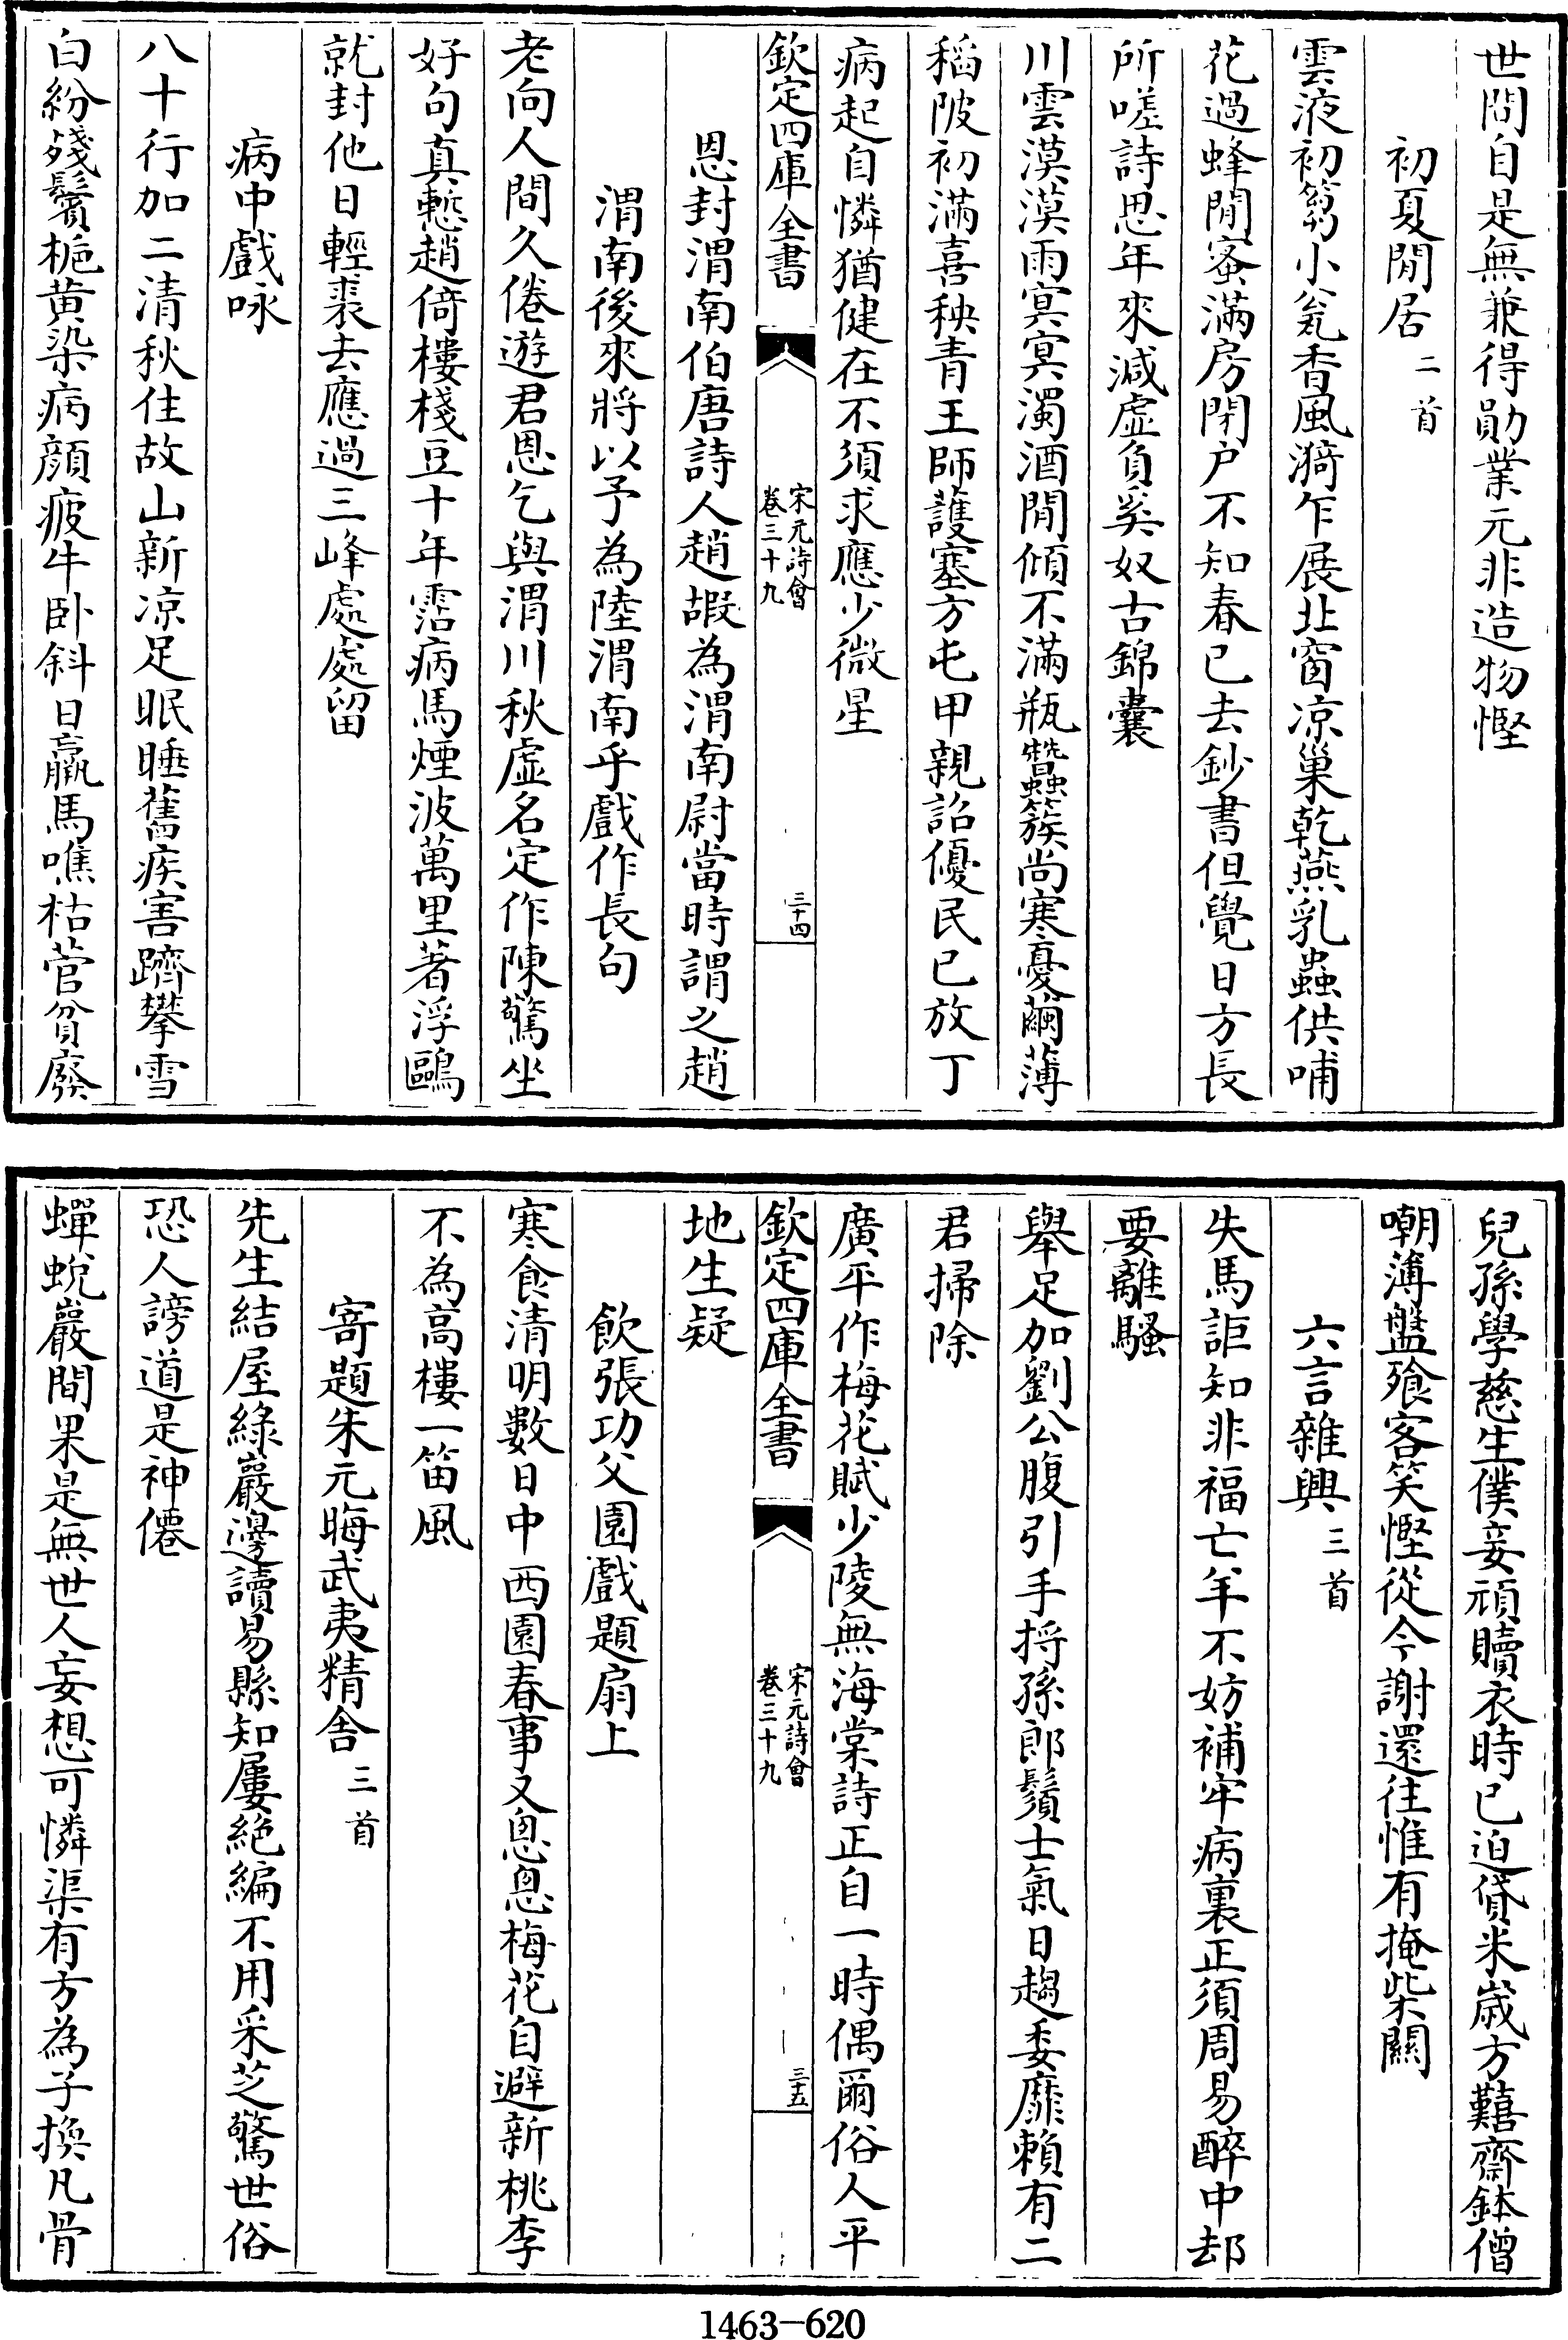 世間自是無兼得勛業元非造物慳
初夏閒居二首
雲液初篘小瓮香風漪乍展北窗凉巢乾燕乳蟲供哺
花過蜂閒蜜滿房閉户不知春已去鈔書但覺日方長
所嗟詩思年來減虛負奚奴古錦囊
川雲漠漠雨冥冥濁酒閒傾不滿瓶蠶簇尚寒憂繭薄
稻陂初滿喜秧青王師護塞方屯甲親詔優民已放丁
病起自憐猶健在不須求應少微星
欽定四庫全書
宋元詩會
卷三十九
三十四
恩封渭南伯唐詩人趙嘏為渭南尉當時謂之趙
渭南後來將以予為陸渭南乎戲作長句
老向人間久倦遊君恩乞與渭川秋虛名定作陳驚坐
好句真慙趙倚樓棧豆十年霑病馬煙波萬里著浮鷗
就封他日輕裘去應過三峰處處留
病中戲咏
八十行加二清秋住故山新凉足眠睡舊疾害躋攀雪
白紛殘鬢梔黄染病顔疲牛卧斜日羸馬噍枯菅貧廢
兒孫學慈生僕妾頑贖衣時已迫貸米嵗方囏齋鉢僧
嘲薄盤飱客笑慳從今謝還往惟有掩柴關
六言雜興三首
失馬詎知非福亡羊不妨補牢病裏正須周易醉中却
要離騷
舉足加劉公腹引手捋孫郎鬚士氣日趨委靡賴有二
君掃除
廣平作梅花賦少陵無海棠詩正自一時偶爾俗人平
欽定四庫全書
宋元詩會
卷三十九
三十五
地生疑
飲張功父園戲題扇上
寒食清明數日中西園春事又悤悤梅花自避新桃李
不為高樓一笛風
寄題朱元晦武夷精舍三首
先生結屋綠巖邊讀易縣知屢絶編不用采芝驚世俗
恐人謗道是神僊
蟬蛻巖間果是無世人妄想可憐渠有方為子換凡骨
1463-620